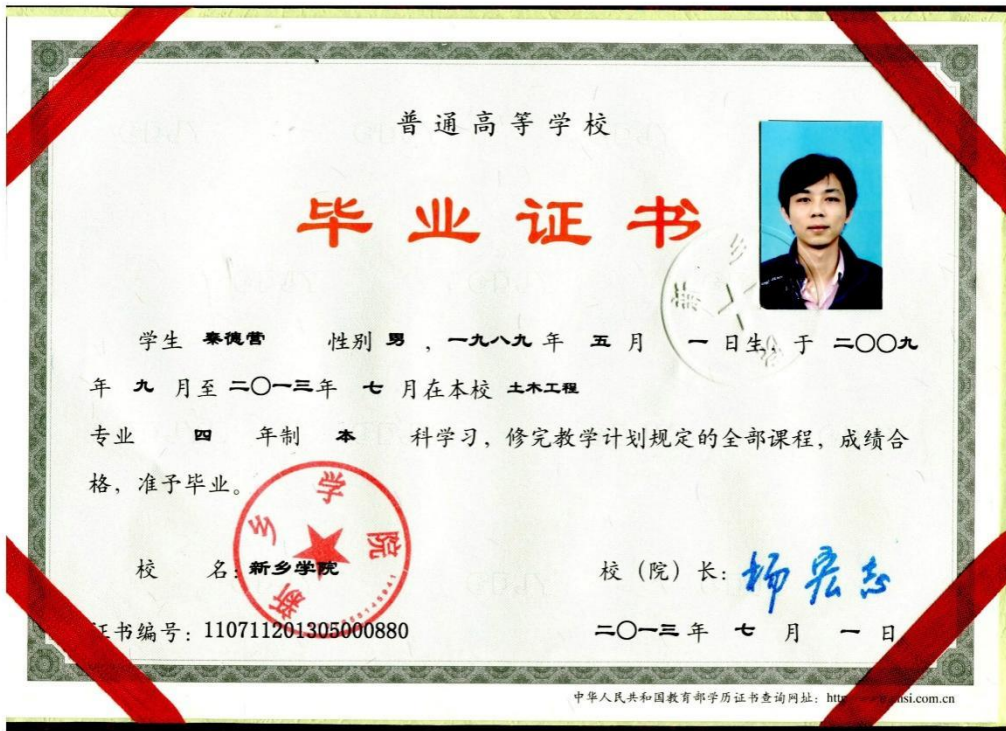 普通高等学校
毕业证书
学生 秦德营 性别 男 ，一九八九 年 五 月 一 日生，于 二〇〇九
年 九 月至 二〇一三年 七 月在本校 土木工程
专业 四 年制 本 科学习，修完教学计划规定的全部课程，成绩合
格，准予毕业。
新乡学院
校 名：新乡学院
校（院）长：杨宏志
证书编号：110711201305000880
二〇一三 年 七 月 一 日
中华人民共和国教育部学历证书查询网址：